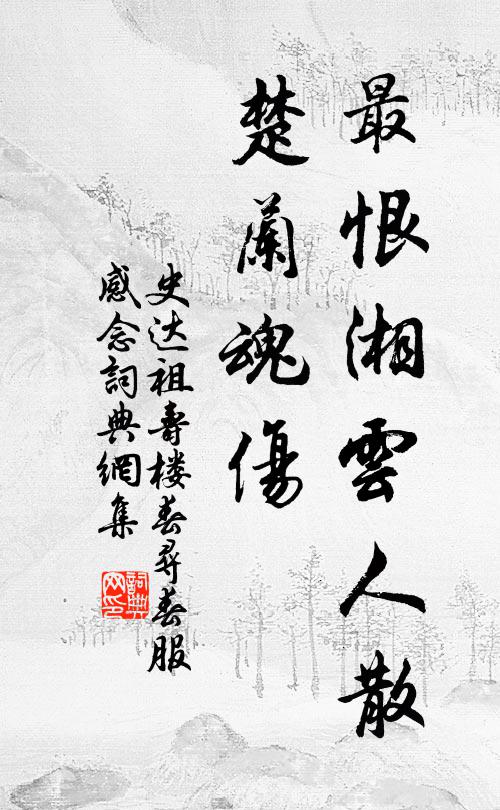 最恨湘雲人散
楚蘭魂傷
史达祖寿楼春尋春服
感念詞典網集
詞典
网印